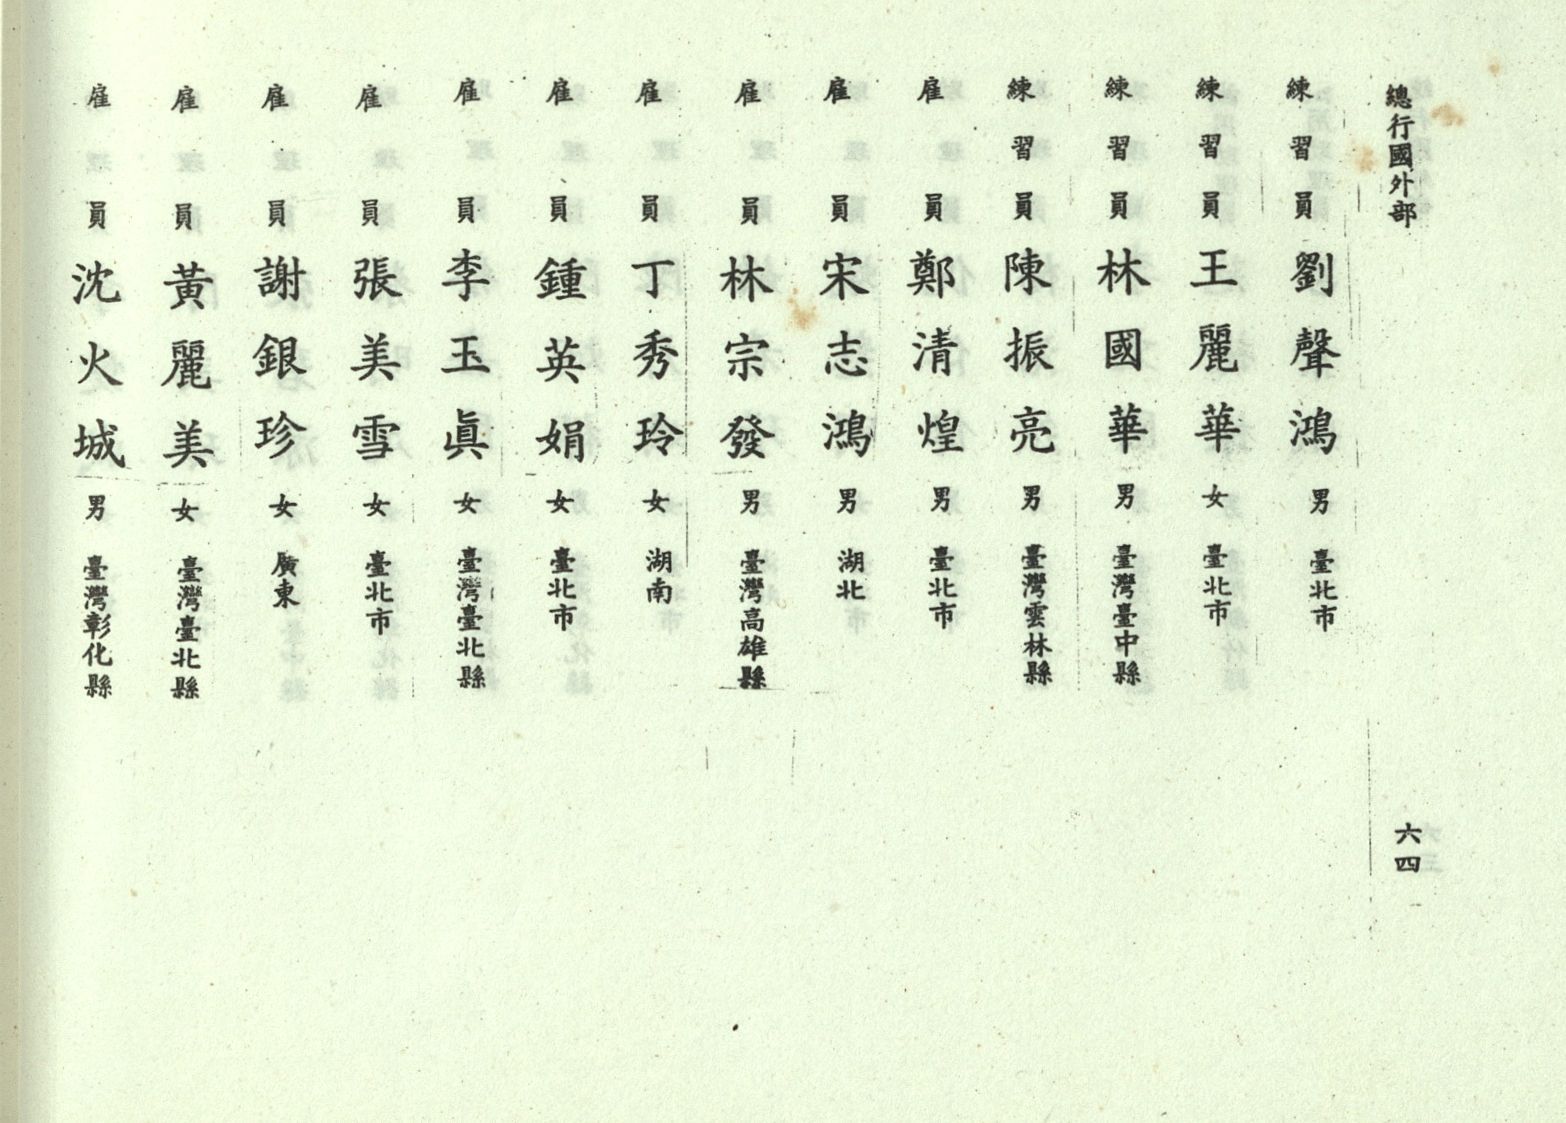 總行國外部
六四
練習員 劉聲鴻 男 臺北市
練習員 王麗華 女 臺北市
練習員 林國華 男 臺灣臺中縣
練習員 陳振亮 男 臺灣雲林縣
雇員 鄭清煌 男 臺北市
雇員 宋志鴻 男 湖北
雇員 林宗發 男 臺灣高雄縣
雇員 丁秀玲 女 湖南
雇員 鍾英娟 女 臺北市
雇員 李玉眞 女 臺灣臺北縣
雇員 張美雪 女 臺北市
雇員 謝銀珍 女 廣東
雇員 黃麗美 女 臺灣臺北縣
雇員 沈火城 男 臺灣彰化縣